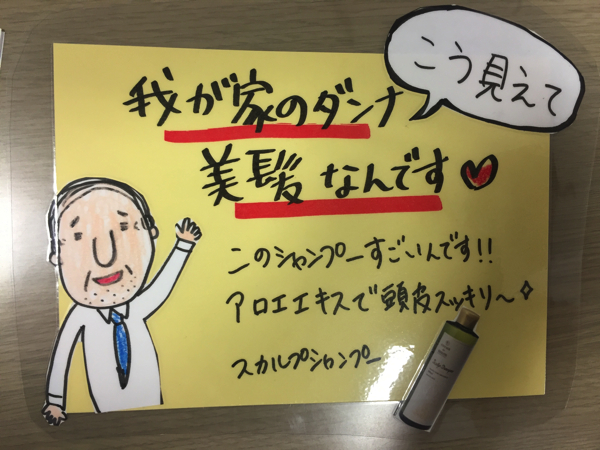 こう見えて
我が家のダンナ
美髪なんです
このシャンプーすごいんです!!
アロエエキスで頭皮スッキリ〜
スカルプシャンプー